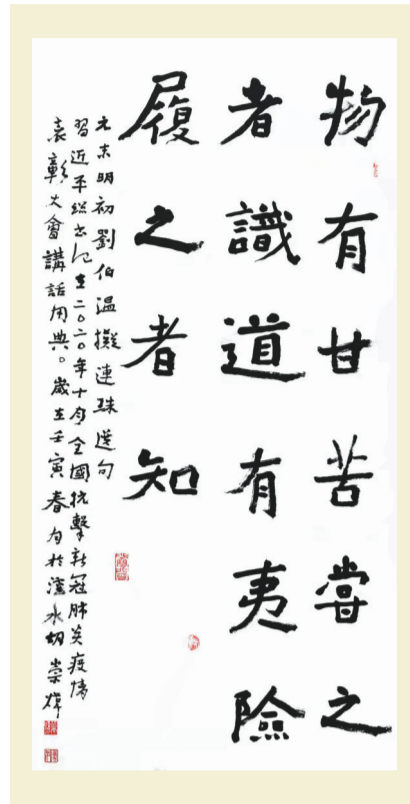 物有甘苦嘗之
者識道有夷險
履之者知
元末明初劉伯溫擬連珠選句
習近平總書記在二〇二〇年十月全國抗擊新冠肺炎疫情
表彰大會講話用典。歲在壬寅春月於水崇輝